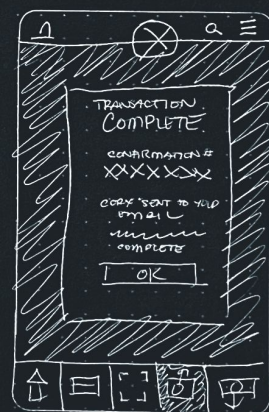 TRANSACTION
COMPLETE.
CONFIRMATION #
XXXXXX
COPY SENT TO YOUR
EMAIL
COMPLETE
OK